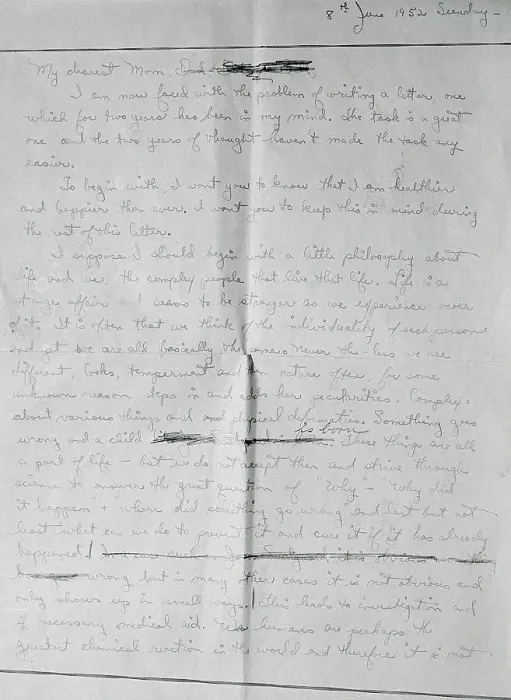 8th June 1952 Sunday -
My dearest Mom, Dad +
I am now faced with the problem of writing a letter, one
which for two years has been in my mind. The task is a great
one and the two years of thought haven't made the task any
easier.
To begin with, I want you to know that I am healthier
and happier than ever. I want you to keep this in mind during
the rest of this letter.
I suppose I should begin with a little philosophy about
life and we, the complex people that live that life. Life is a
strange affair seems to be stranger as we experience more
of it. It is often that we think of the individuality of each person
and yet we are all basically the same. Never-the-less we are
different, looks, temperment and nature often, for some
unknown reason, steps in and adds her pecularities. Complex's
about various things and physical deformities. Something goes
wrong and a child is born These things are all
a part of life - but we do not accept them and strive through
science to answer the great question of "Why" - "Why did
it happen + "where did something go wrong and last but not
least what can we do to prevent it and cure it if it has already
happened!
wrong but in many other cases it is not obvious and
only shows up in small ways. This leads to investigation and
if necessary medical aid. humans are perhaps the
greatest chemical reaction in the world and therefore it is not